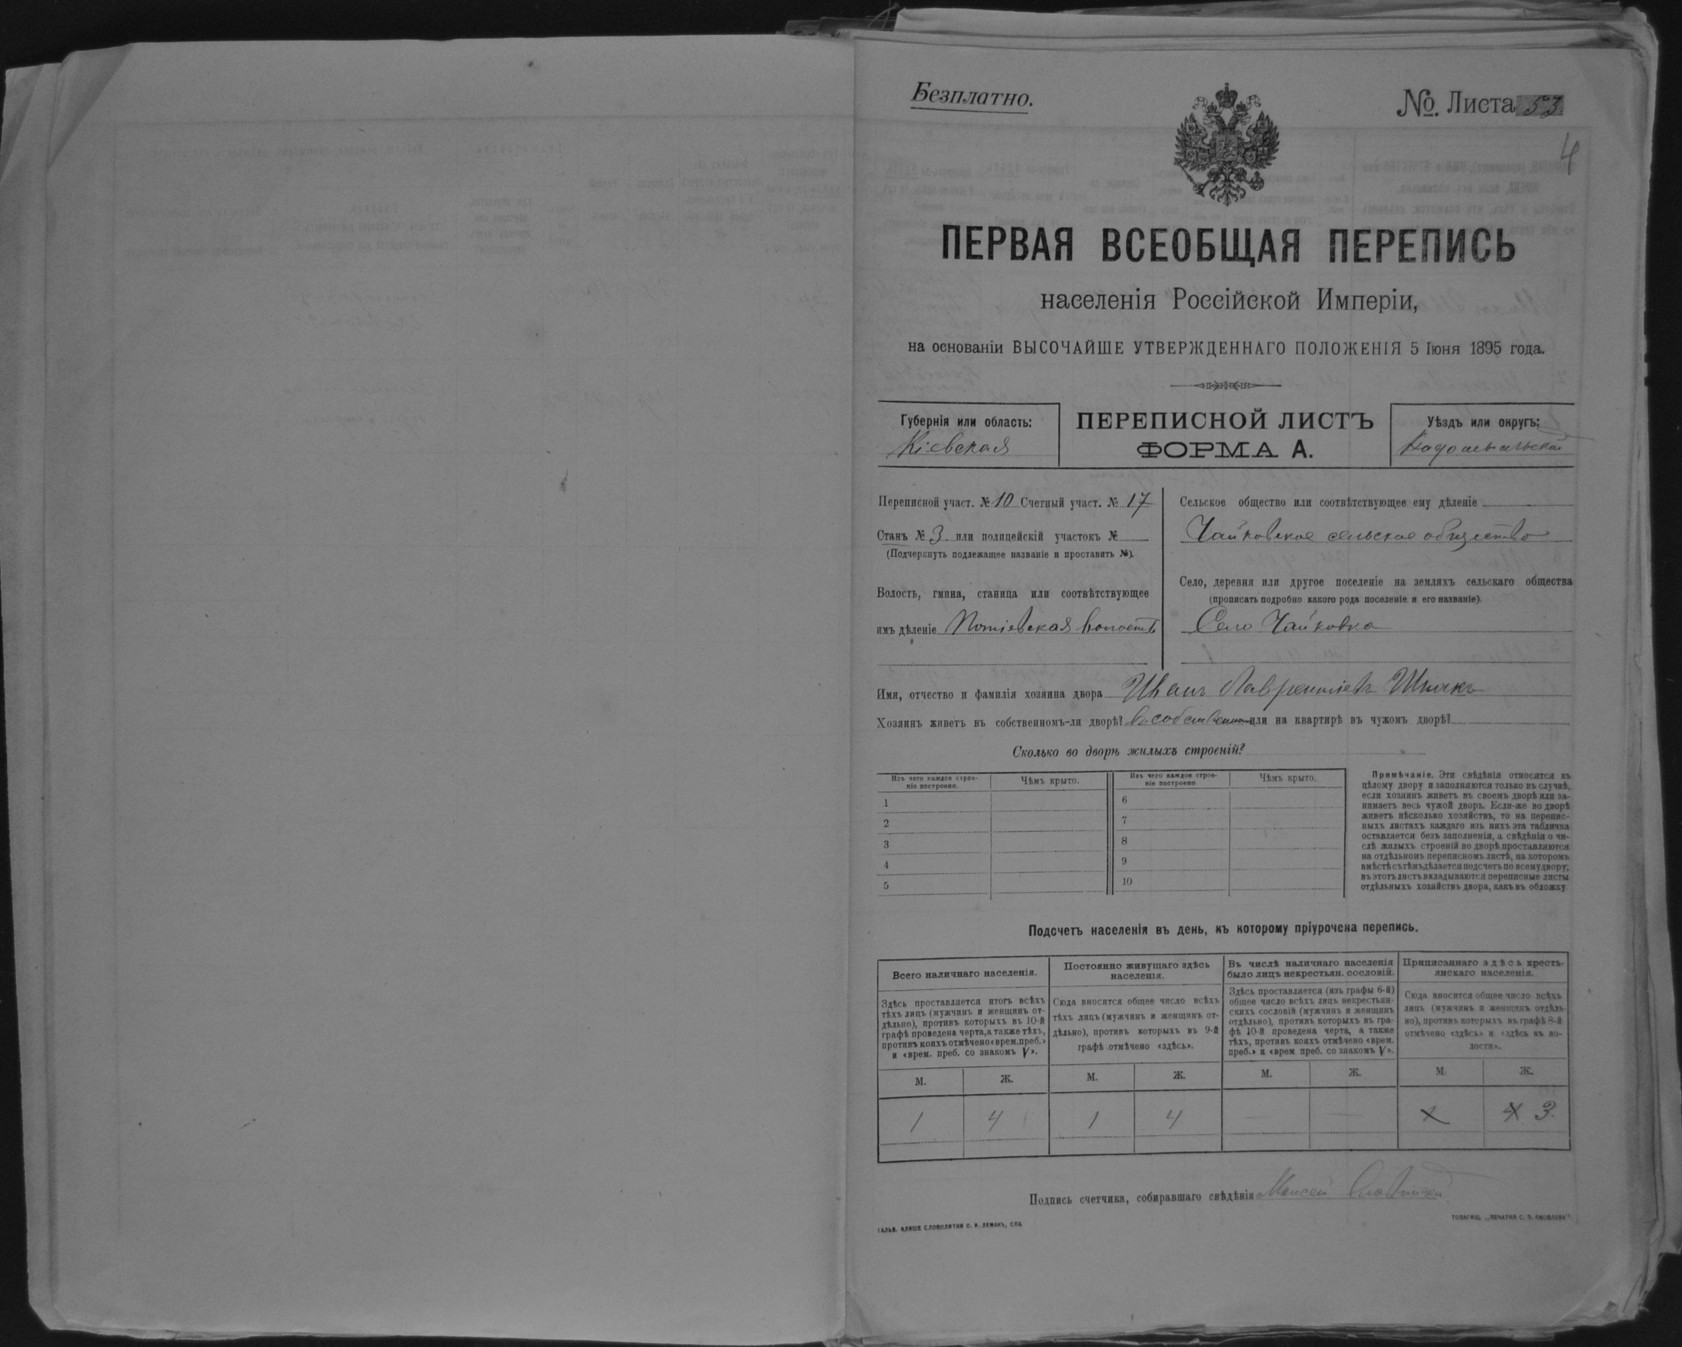 Безплатно.
№. Листа 53
4
ПЕРВАЯ ВСЕОБЩАЯ ПЕРЕПИСЬ
населенія Россійской Имперіи,
на основаніи ВЫСОЧАЙШЕ УТВЕРЖДЕННАГО ПОЛОЖЕНІЯ 5 Іюня 1895 года.
Губернія или область:
Кіевская
ПЕРЕПИСНОЙ ЛИСТЪ
ФОРМА А.
Уѣздъ или округъ:
Переписной участ. № 10 Счетный участ. № 17
Станъ № 3 или полицейскій участокъ №
(Подчеркнуть подлежащее названіе и проставить №).
Волость, гмина, станица или соотвѣтствующее
имъ дѣленіе Потіевская волость
Сельское общество или соотвѣтствующее ему дѣленіе
Чайковское сельское общество
Село, деревня или другое поселеніе на земляхъ сельскаго общества
(прописать подробно какого рода поселеніе и его названіе).
Село Чайковка
Имя, отчество и фамилія хозяина двора Иванъ Лаврентіевъ Шпакъ
Хозяинъ живетъ въ собственномъ-ли дворѣ? въ собственномъ или на квартирѣ въ чужомъ дворѣ?
Сколько во дворѣ жилыхъ строеній?
Изъ чего каждое строе-
ніе построено.
Чѣмъ крыто.
Изъ чего каждое строе-
ніе построено.
Чѣмъ крыто.
1
2
3
4
5
6
7
8
9
10
Примѣчаніе. Эти свѣдѣнія относятся къ
цѣлому двору и заполняются только въ случаѣ,
если хозяинъ живетъ въ своемъ дворѣ или за-
нимаетъ весь чужой дворъ. Если-же во дворѣ
живетъ нѣсколько хозяйствъ, то на перепис-
ныхъ листахъ каждаго изъ нихъ эта табличка
оставляется безъ заполненія, а свѣдѣнія о чи-
слѣ жилыхъ строеній во дворѣ проставляются
на отдѣльномъ переписномъ листѣ, на которомъ
вмѣстѣ съ тѣмъ дѣлается подсчетъ по всему двору;
въ этотъ листъ вкладываются переписные листы
отдѣльныхъ хозяйствъ двора, какъ въ обложку.
Подсчетъ населенія въ день, къ которому пріурочена перепись.
Всего наличнаго населенія.
Здѣсь проставляется итогъ всѣхъ
тѣхъ лицъ (мужчинъ и женщинъ от-
дѣльно), противъ которыхъ въ 10-й
графѣ проведена черта, а также тѣхъ,
противъ коихъ отмѣчено «врем. преб.»
и «врем. преб. со знакомъ V».
Постоянно живущаго здѣсь
населенія.
Сюда вносится общее число всѣхъ
тѣхъ лицъ (мужчинъ и женщинъ от-
дѣльно), противъ которыхъ въ 9-й
графѣ отмѣчено «здѣсь».
Въ числѣ наличнаго населенія
было лицъ некрестьян. сословій.
Здѣсь проставляется (изъ графы 6-й)
общее число всѣхъ лицъ некрестьян-
скихъ сословій (мужчинъ и женщинъ
отдѣльно), противъ которыхъ въ гра-
фѣ 10-й проведена черта, а также
тѣхъ, противъ коихъ отмѣчено «врем.
преб.» и «врем. преб. со знакомъ V».
Приписаннаго здѣсь кресть-
янскаго населенія.
Сюда вносится общее число всѣхъ
лицъ (мужчинъ и женщинъ отдѣль-
но), противъ которыхъ въ графѣ 8-й
отмѣчено «здѣсь» и «здѣсь въ во-
лости».
М. Ж. М. Ж. М. Ж. М. Ж.
1 4 1 4 — — 3
Подпись счетчика, собиравшаго свѣдѣнія Моисей
ГАЛЬВ. КЛИШЕ СЛОВОЛИТНИ О. И. ЛЕМАНЪ, СПБ.
ТОВАРИЩ. „ПЕЧАТНЯ С. П. ЯКОВЛЕВА“